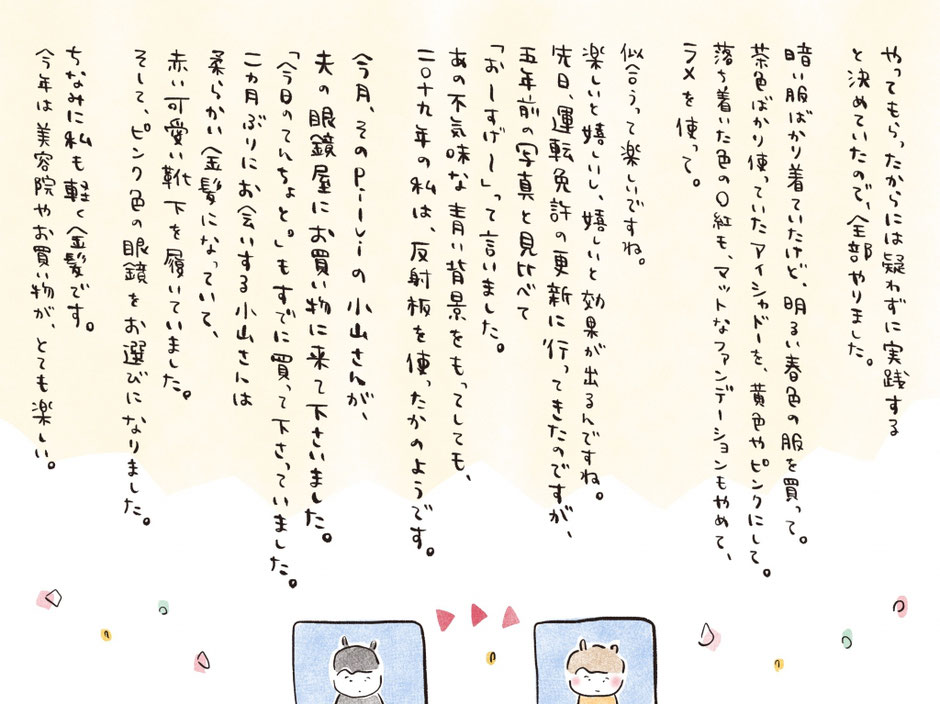 やってもらったからには疑わずに実践する
と決めていたので、全部やりました。
暗い服ばかり着ていたけど、明るい春色の服を買って。
茶色ばかり使っていたアイシャドーを、黄色やピンクにして。
落ち着いた色の口紅も、マットなファンデーションもやめて、
ラメを使って。
似合うって楽しいですね。
楽しいと嬉しいし、嬉しいと効果が出るんですね。
先日、運転免許の更新に行ってきたのですが、
五年前の写真と見比べて
「おーすげー」って言いました。
あの不気味な青い背景をもってしても、
二〇十九年の私は、反射板を使ったかのようです。
今月、そのPilviの小山さんが、
夫の眼鏡屋にお買い物に来て下さいました。
「今日のてんちょと。」もすでに買って下さっていました。
二ヵ月ぶりにお会いする小山さんは
柔らかい金髪になっていて、
赤い可愛い靴下を履いていました。
そして、ピンク色の眼鏡をお選びになりました。
ちなみに私も軽く金髪です。
今年は美容院やお買い物が、とても楽しい。